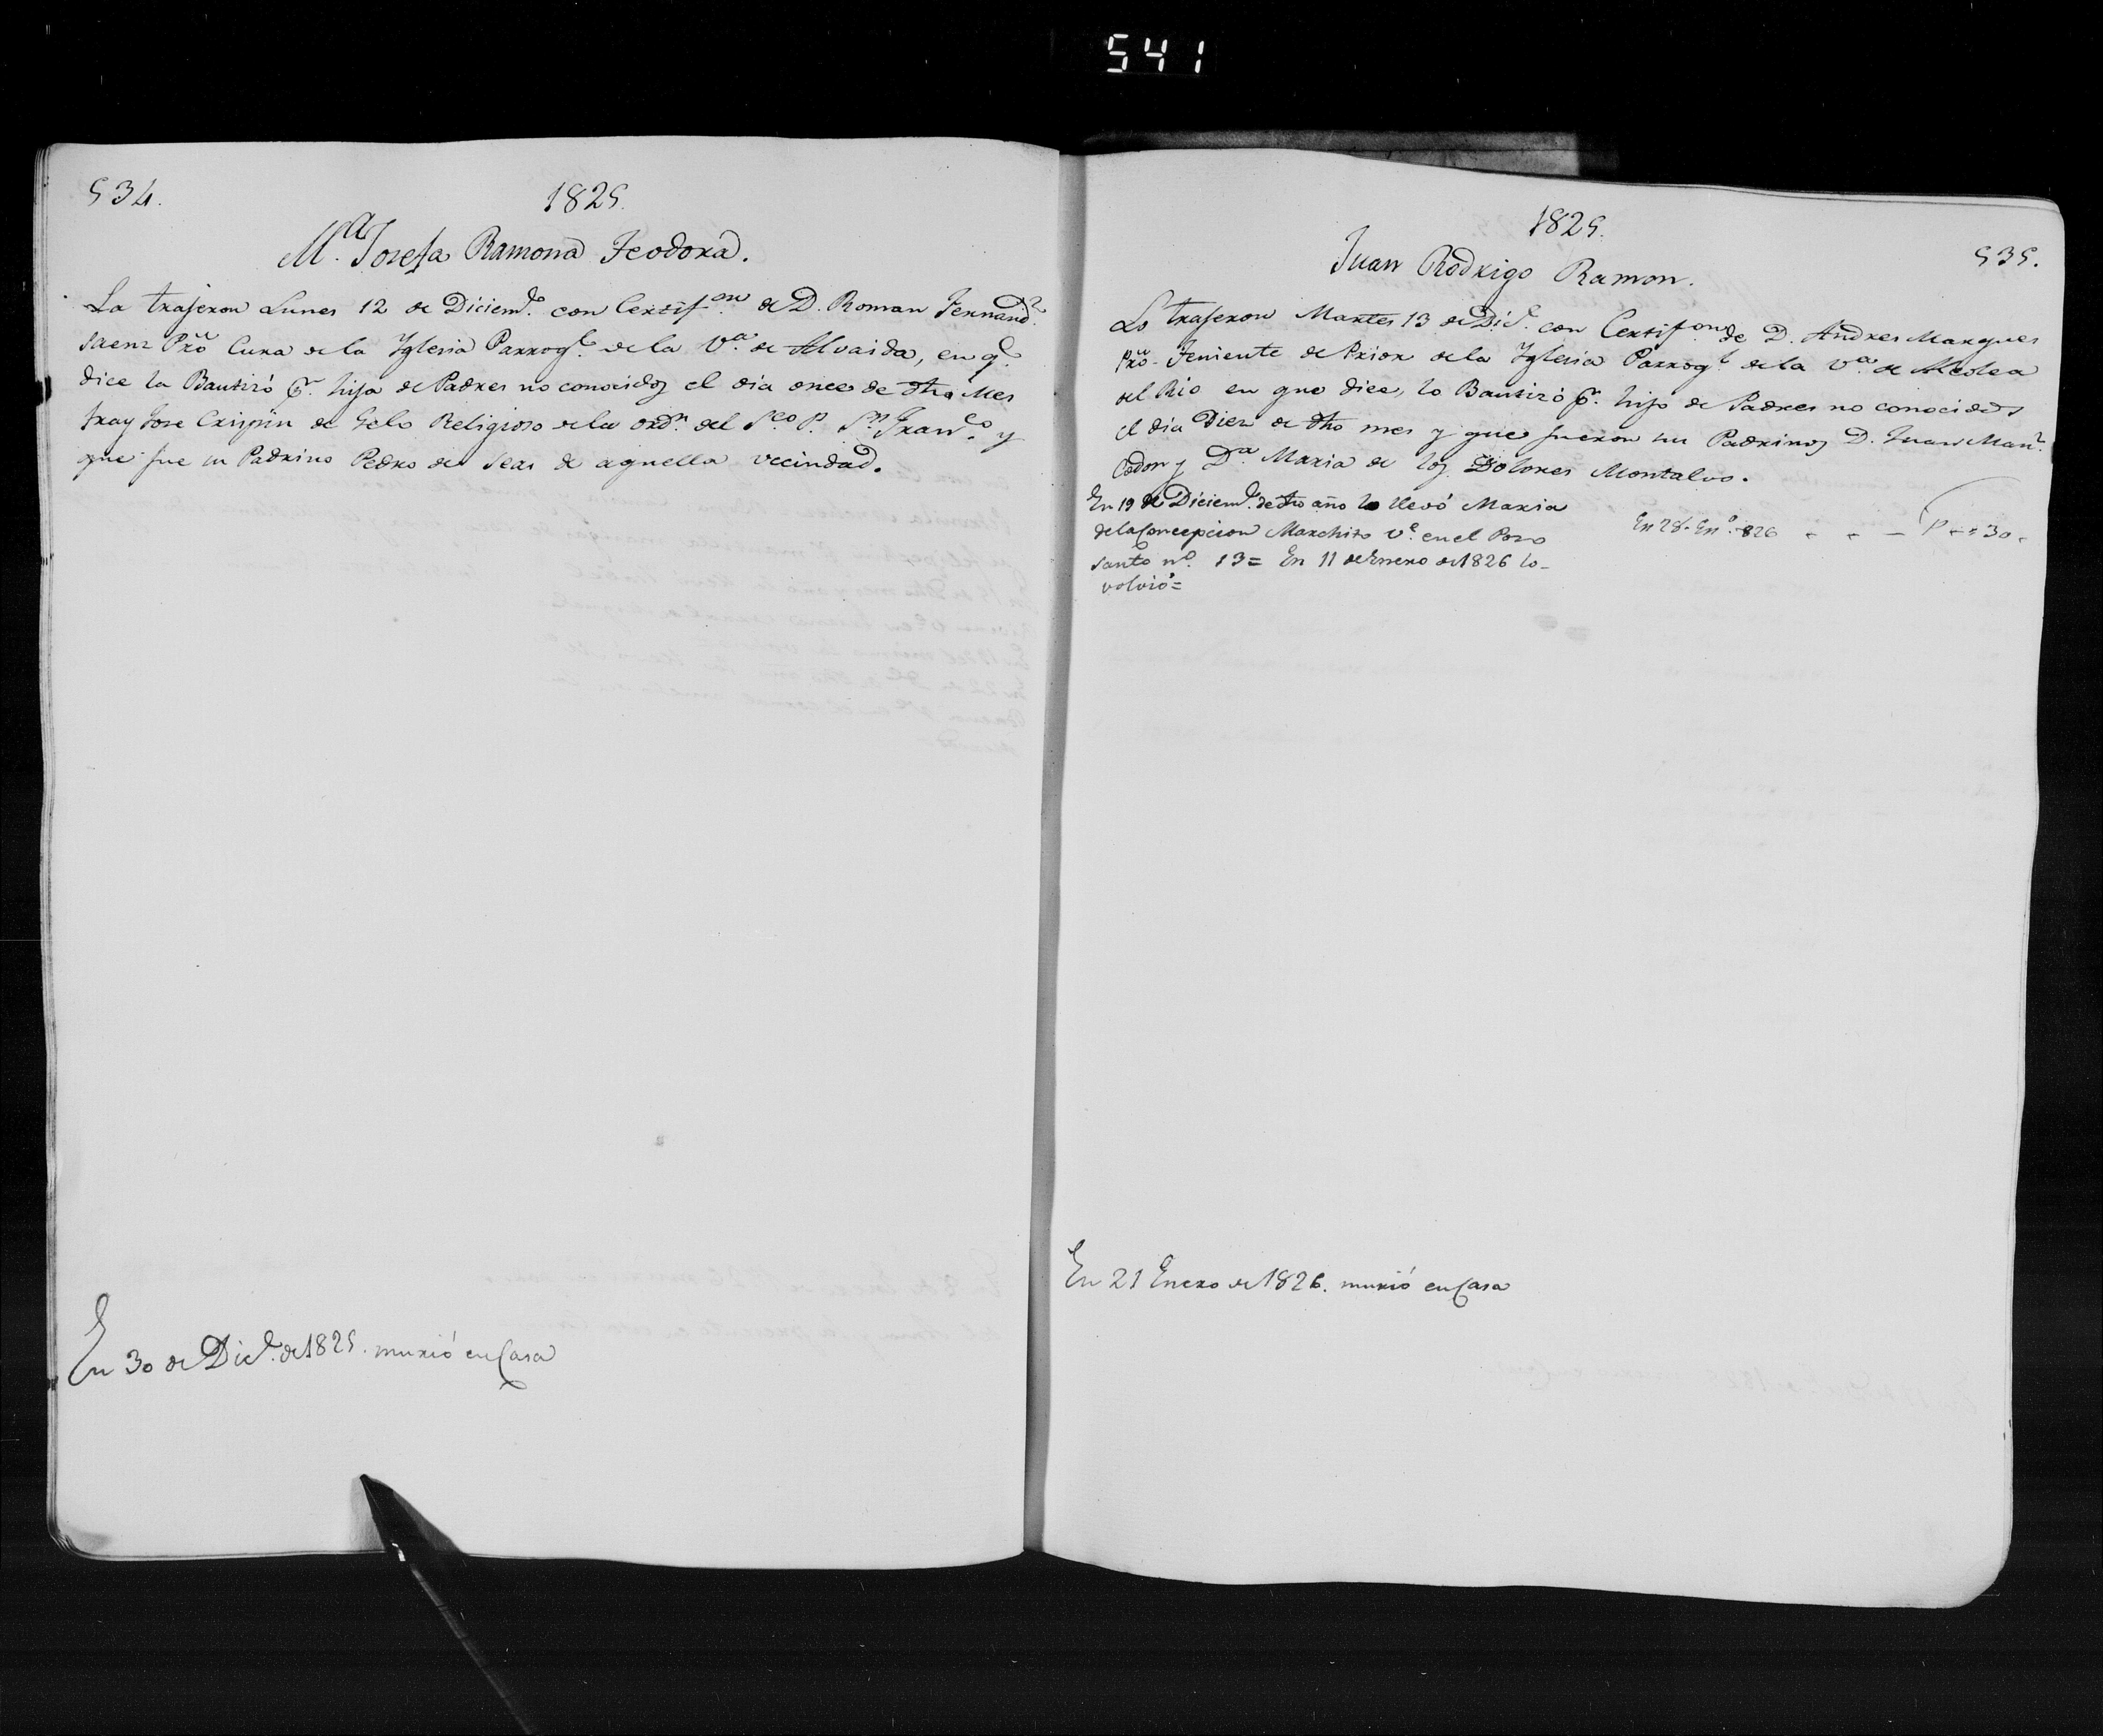 541
534.
1825.
Mª. Josefa Ramona Teodora.
La trajeron Lunes 12 de Diciemᵉ. con Certifᵒⁿ. de D. Roman Fernandᶻ.
Saenz Pro Cura de la Yglesia Parrogˡ. de la Vª. de Alvaida, en qᵉ.
dice la Bautizó Sr. hija de Padres no conocidos el dia once de dho Mes
Fray Jose Crispin de Gelo Religioso de la ordⁿ. del Sᶜᵒ P. Sⁿ. Franᶜᵒ. y
que fue su Padrino Pedro de Seas de aquella vecindad.
En 30 de Dicᵉ. de 1825. murió en Casa
1825.
535.
Juan Rodrigo Ramon.
Lo trajeron Martes 13 de Dicᵉ. con Certifᵒⁿ de D. Andres Marques
Pro. Teniente de Prior de la Yglesia Parrogˡ. de la Vª. de Alcolea
del Rio en que dice, lo Bautizó Sr. hijo de Padres no conocidos
el dia Diez de dho mes y que fueron sus Padrinos D. Juan Manˡ.
Codon y Dª Maria de los Dolores Montalvo.
En 19 de Diciemᵉ. de dho año lo llevó Maria
de la Concepcion Marchito vᵉ. en el Pozo
santo nº. 13 = En 11 de Enero de 1826 lo
volvió =
En 28. Enº. 826 - - - P - - 30.
En 21 Enero de 1826. murió en Casa